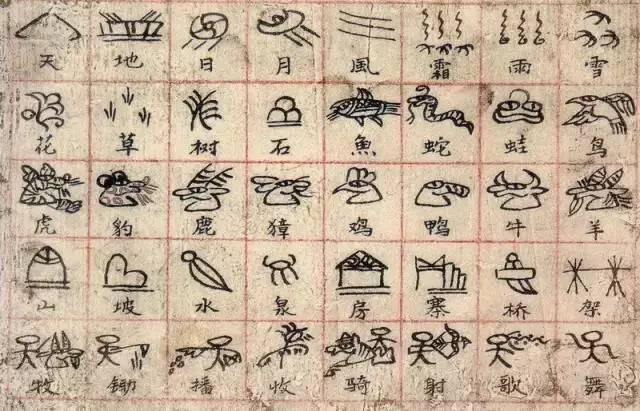 天 地 日 月 風 霜 雨 雪
花 草 树 石 魚 蛇 蛙 鸟
虎 豹 鹿 獐 鸡 鸭 牛 羊
山 坡 水 泉 房 寨 桥 架
牧 锄 播 收 骑 射 歌 舞